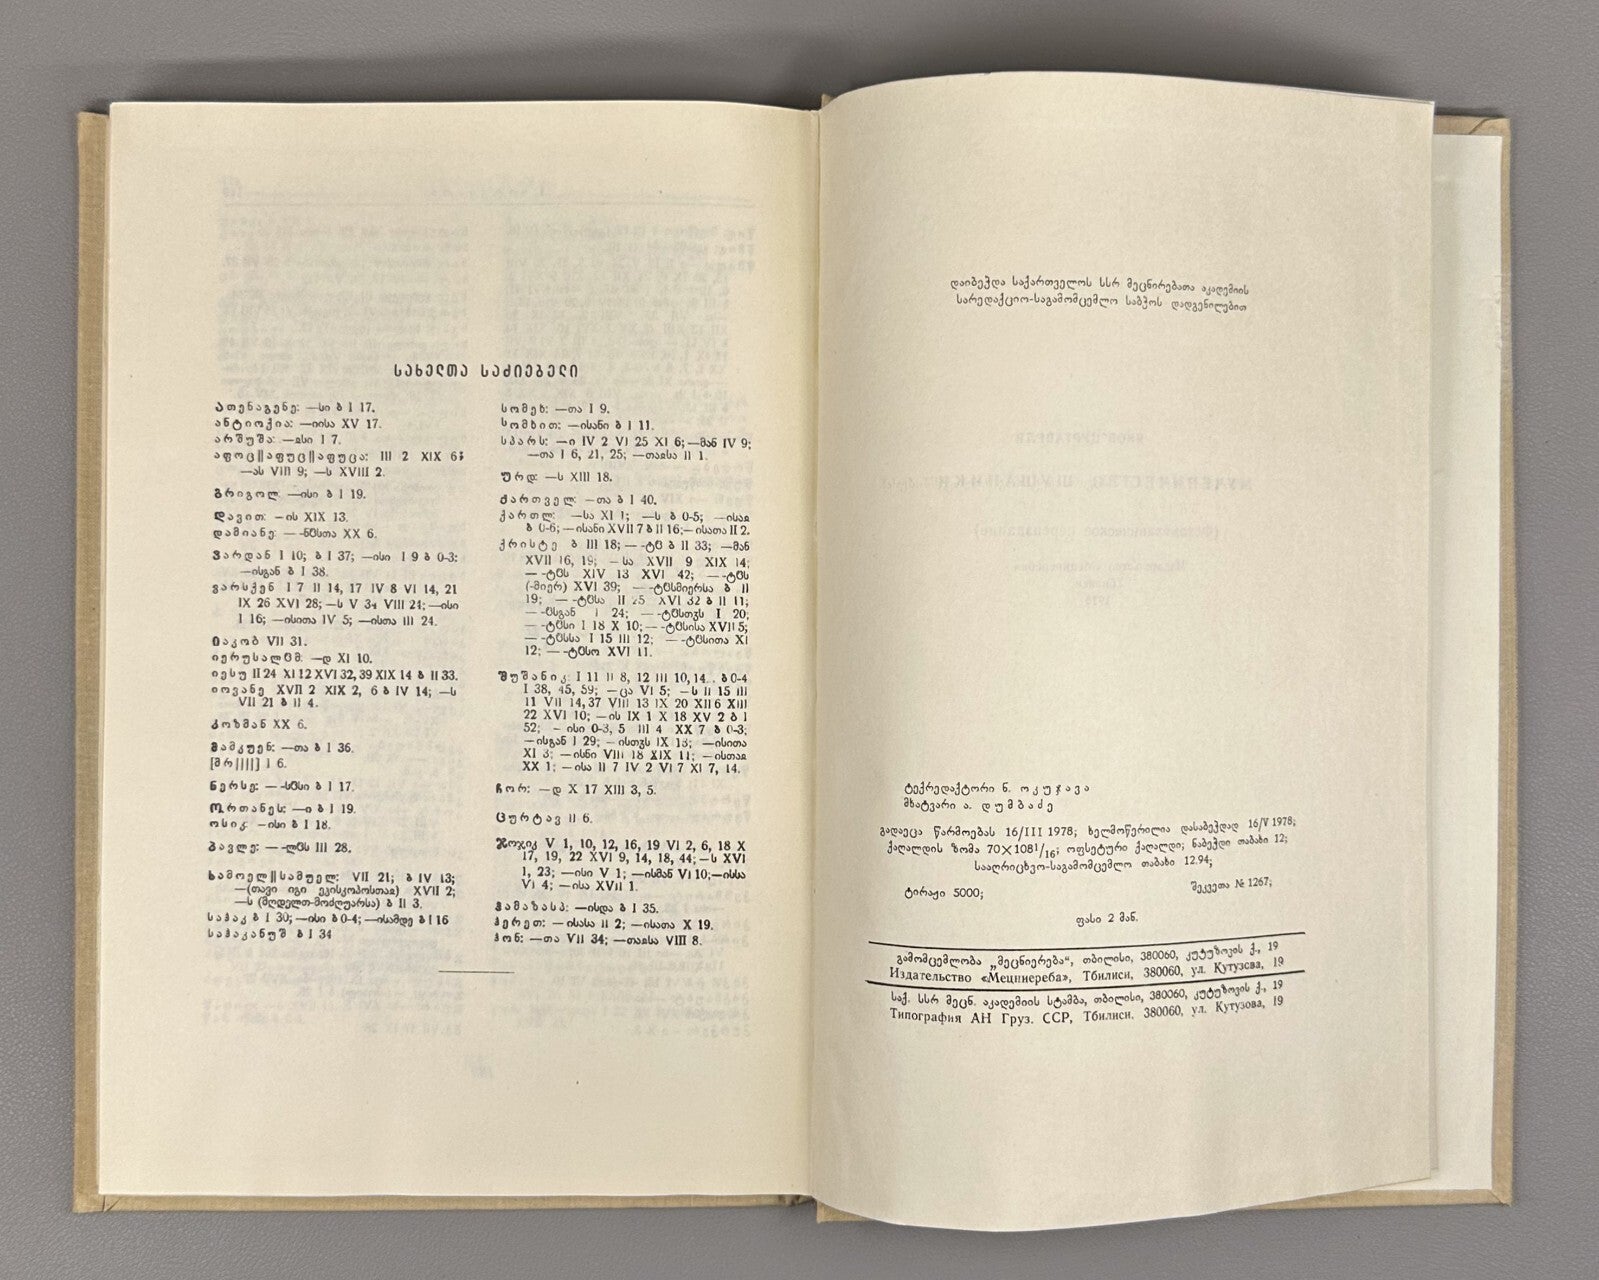 სახელთა საძიებელი
ათენაგენე: —სი ბ I 17.
ანტიოქია: —იისა XV 17.
არშუშა: —ჲსი I 7.
აფოც||აფუც||აფუცა: III 2 XIX 6;
—ას VIII 9; —ს XVIII 2.
გრიგოლ: —ისი ბ I 19.
დავით: —ის XIX 13.
დამიანე: — -ნჱსთა XX 6.
ვარდან I 10; ბ I 37; —ისი I 9 ბ 0-3:
—ისგან ბ I 38.
ვარსქენ I 7 II 14, 17 IV 8 VI 14, 21
IX 26 XVI 28; —ს V 34 VIII 24; —ისი
I 16; —ისითა IV 5; —ისთა III 24.
იაკობ VII 31.
იერუსალჱმ: —დ XI 10.
იესუ II 24 XI 12 XVI 32, 39 XIX 14 ბ II 33.
იოვანე XVII 2 XIX 2, 6 ბ IV 14; —ს
VII 21 ბ II 4.
კოზმან XX 6.
მამკუენ: —თა ბ I 36.
[მრ||||] I 6.
ნერსე: — -სჱსი ბ I 17.
ორთანეს: —ი ბ I 19.
ოსიკ —ისი ბ I 18.
პავლე: — -ლჱს III 28.
სამოელ||სამუელ: VII 21; ბ IV 13;
—(თავი იგი ეპისკოპოსთაჲ) XVII 2;
—ს (მღდელთ-მოძღუარსა) ბ II 3.
საჰაკ ბ I 30; —ისი ბ 0-4; —ისამდე ბ I 16
საჰაკანუშ ბ I 34
სომეხ: —თა I 9.
სომხით: —ისანი ბ I 11.
სპარს: —ი IV 2 VI 25 XI 6; —მან IV 9;
—თა I 6, 21, 25; —თაჲსა II 1.
ურდ: —ს XIII 18.
ქართველ: —თა ბ I 40.
ქართლ: —სა XI 1; —ს ბ 0-5; —ისაჲ
ბ 0-6; —ისანი XVII 7 ბ II 16; —ისათა II 2.
ქრისტე ბ III 18; — -ტჱ ბ II 33; —მან
XVII 16, 19; —სა XVII 9 XIX 14;
— -ტჱს XIV 13 XVI 42; — -ტჱს
(-მიერ) XVI 39; — -ტჱსმიერსა ბ II
19; — -ტჱსა II 25 XVI 32 ბ II 11;
— -ტჱსგან I 24; — -ტჱსთჳს I 20;
— -ტჱსი I 18 X 10; — -ტჱსისა XVII 5;
— -ტჱსსა I 15 III 12; — -ტჱსითა XI
12; — -ტჱსო XVI 11.
შუშანიკ: I 11 II 8, 12 III 10, 14.. ბ 0-4
I 38, 45, 59; —ცა VI 5; —ს II 15 III
11 VII 14, 37 VIII 13 IX 20 XII 6 XIII
22 XVI 10; —ის IX 1 X 18 XV 2 ბ I
52; —ისი 0-3, 5 III 4 XX 7 ბ 0-3;
—ისგან I 29; —ისთჳს IX 13; —ისითა
XI 3; —ისნი VIII 18 XIX 11; —ისთაჲ
XX 1; —ისა II 7 IV 2 VI 7 XI 7, 14.
ჩორ: —დ X 17 XIII 3, 5.
ცურტავ II 6.
ჯოჯიკ V 1, 10, 12, 16, 19 VI 2, 6, 18 X
17, 19, 22 XVI 9, 14, 18, 44; —ს XVI
1, 23; —ისი V 1; —ისმან VI 10; —ისსა
VI 4; —ისა XVII 1.
ჰამაზასპ: —ისდა ბ I 35.
ჰერეთ: —ისასა II 2; —ისათა X 19.
ჰონ: —თა VII 34; —თაჲსა VIII 8.
დაიბეჭდა საქართველოს სსრ მეცნიერებათა აკადემიის
სარედაქციო-საგამომცემლო საბჭოს დადგენილებით
ტექრედაქტორი ნ. ოკუჯავა
მხატვარი ა. დუმბაძე
გადაეცა წარმოებას 16/III 1978; ხელმოწერილია დასაბეჭდად 16/V 1978;
ქაღალდის ზომა 70×108¹/₁₆; ოფსეტური ქაღალდი; ნაბეჭდი თაბახი 12;
სააღრიცხვო-საგამომცემლო თაბახი 12.94;
ტირაჟი 5000; შეკვეთა № 1267;
ფასი 2 მან.
გამომცემლობა „მეცნიერება“, თბილისი, 380060, კუტუზოვის ქ., 19
Издательство «Мецниереба», Тбилиси, 380060, ул. Кутузова, 19
საქ. სსრ მეცნ. აკადემიის სტამბა, თბილისი, 380060, კუტუზოვის ქ., 19
Типография АН Груз. ССР, Тбилиси. 380060, ул. Кутузова, 19